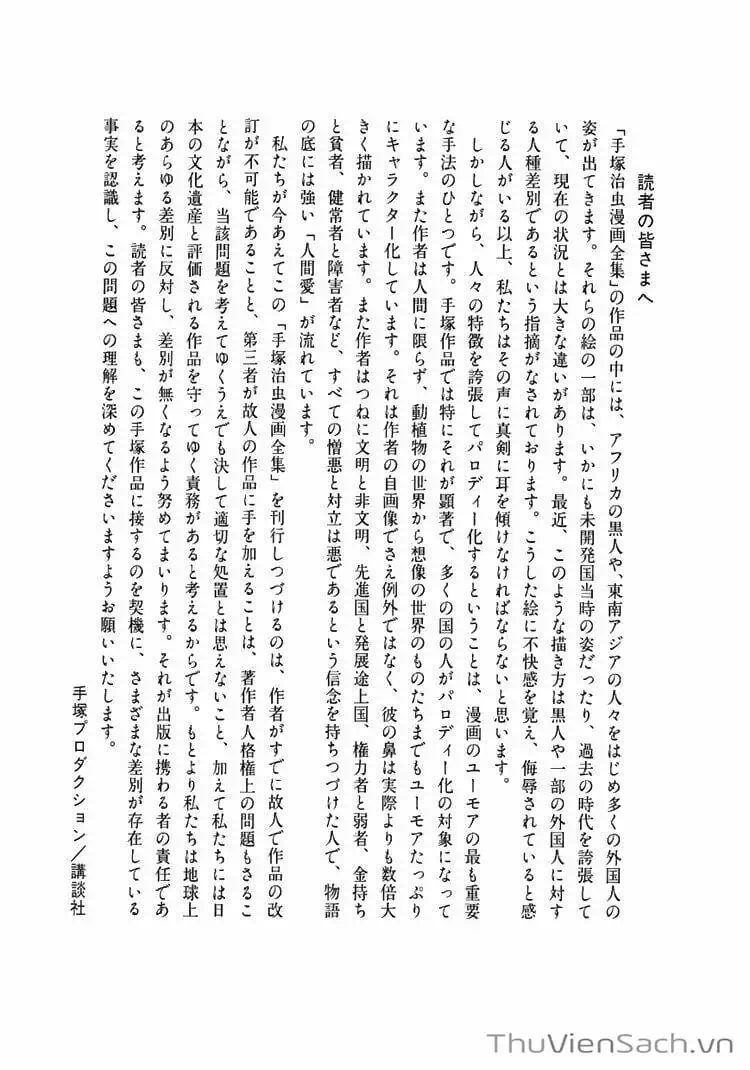 読者の皆さまへ
「手塚治虫漫画全集」の作品の中には、アフリカの黒人や、東南アジアの人々をはじめ多くの外国人の
姿が出てきます。それらの絵の一部は、いかにも未開発国当時の姿だったり、過去の時代を誇張して
いて、現在の状況とは大きな違いがあります。最近、このような描き方は黒人や一部の外国人に対す
る人種差別であるという指摘がなされております。こうした絵に不快感を覚え、侮辱されていると感
じる人がいる以上、私たちはその声に真剣に耳を傾けなければならないと思います。
しかしながら、人々の特徴を誇張してパロディー化するということは、漫画のユーモアの最も重要
な手法のひとつです。手塚作品では特にそれが顕著で、多くの国の人がパロディー化の対象になって
います。また作者は人間に限らず、動植物の世界から想像の世界のものたちまでもユーモアたっぷり
にキャラクター化しています。それは作者の自画像でさえ例外ではなく、彼の鼻は実際よりも数倍大
きく描かれています。また作者はつねに文明と非文明、先進国と発展途上国、権力者と弱者、金持ち
と貧者、健常者と障害者など、すべての憎悪と対立は悪であるという信念を持ちつづけた人で、物語
の底には強い「人間愛」が流れています。
私たちが今あえてこの「手塚治虫漫画全集」を刊行しつづけるのは、作者がすでに故人で作品の改
訂が不可能であることと、第三者が故人の作品に手を加えることは、著作者人格権上の問題もさるこ
とながら、当該問題を考えてゆくうえでも決して適切な処置とは思えないこと、加えて私たちには日
本の文化遺産と評価される作品を守ってゆく責務があると考えるからです。もとより私たちは地球上
のあらゆる差別に反対し、差別が無くなるよう努めてまいります。それが出版に携わる者の責任であ
ると考えます。読者の皆さまも、この手塚作品に接するのを契機に、さまざまな差別が存在している
事実を認識し、この問題への理解を深めてくださいますようお願いいたします。
手塚プロダクション／講談社
ThuVienSach.vn